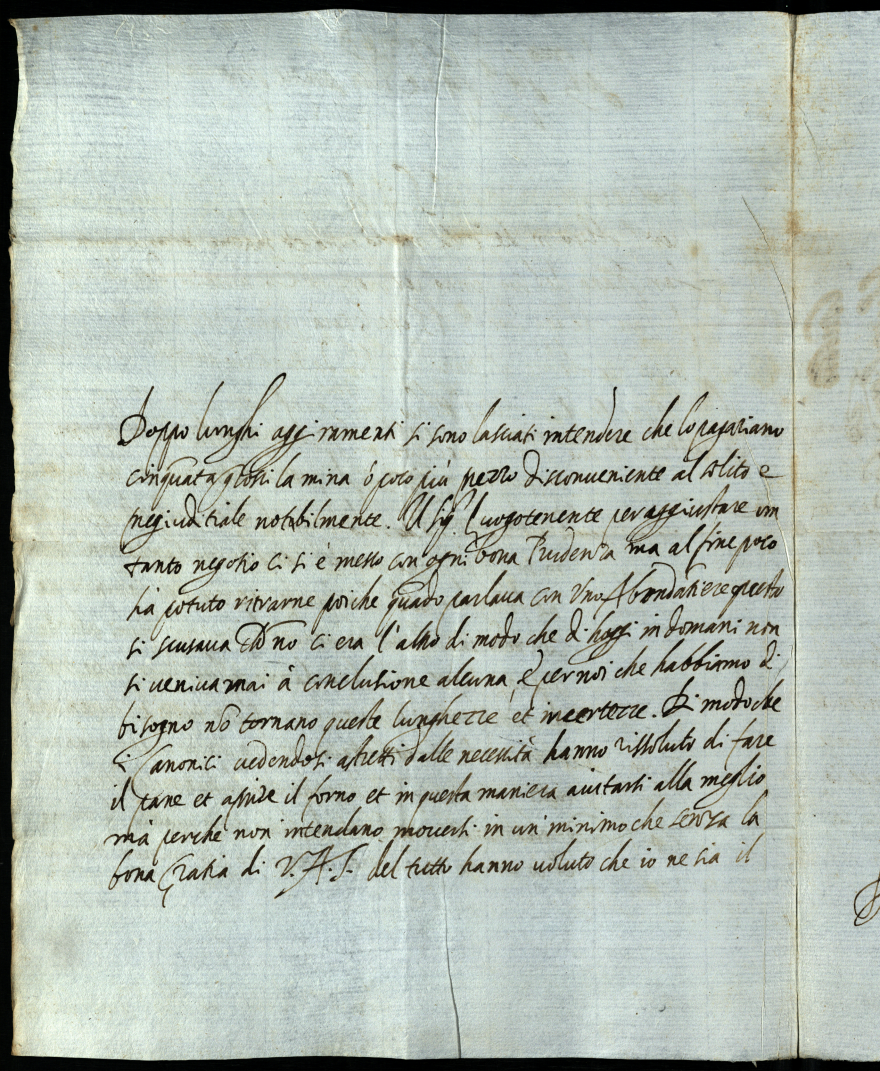 Doppo lunghi aggiramenti si sono lasciati intendere che lo pagariano
cinquãta grossi la mina ò poco più prezzo disconveniente al solito e
pregiuditiale notabilmente. Il sigr Luogotenente per aggiustare un
tanto negotio ci si è messo con ogni bona Prudenza ma al fine poco
hà potuto ritrarne poiche quãdo parlava con Uno Abondãtiere questo
si scusava chõ no ci era l'altro di modo che d'hoggi in domani non
si veniva mai à conclusione alcuna, e per noi che habbiamo di
bisogno nõ tornano queste lunghezze et incertezze. Di modo che
i Canonici vedendosi astretti dalle necessità hanno rissoluto di fare
il pane et aprire il forno et in questa maniera aiutarsi alla meglio
mà perche non intendano moversi in un' minimo che senza la
bona Gratia di V.A.S. del tutto hanno voluto che io ne sia il